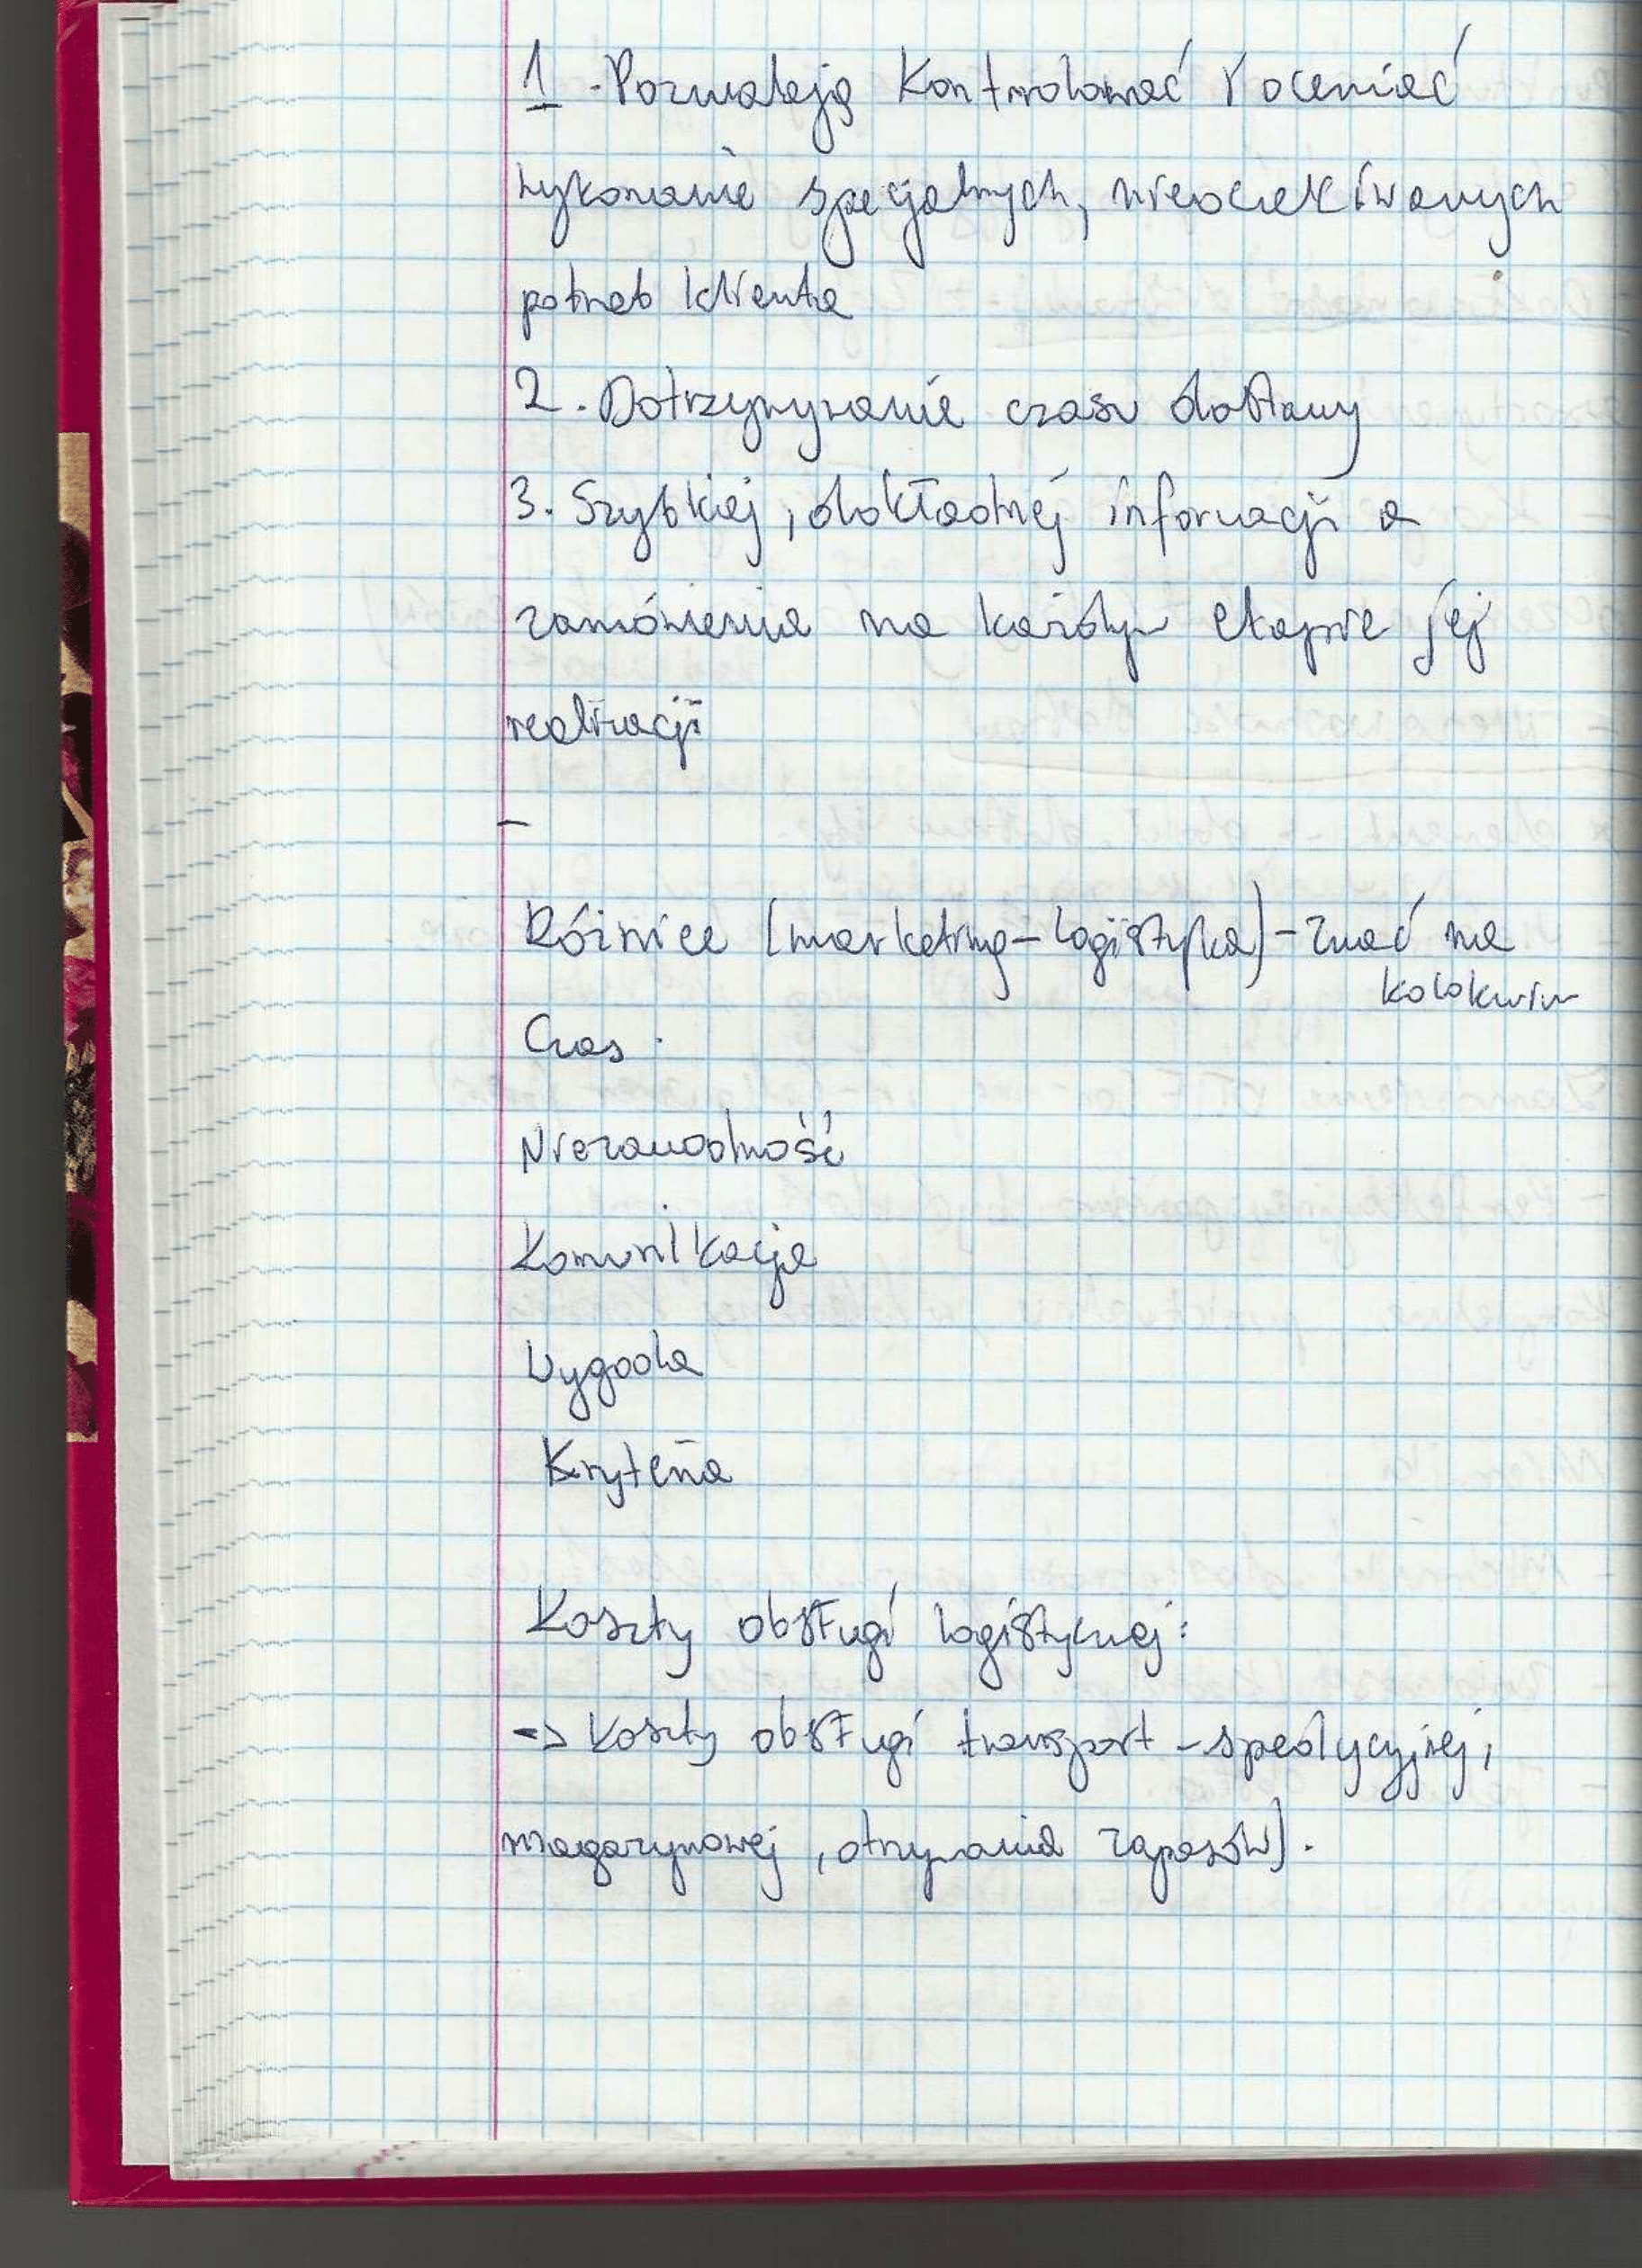 1. Pozwalają kontrolować i oceniać
wykonanie specjalnych, nieoczekiwanych
potrzeb klienta
2. Dotrzymywanie czasu dostawy
3. Szybkiej, dokładnej informacji o
zamówienia na każdym etapie jej
realizacji
–
Różnice (marketing – logistyka) – znać na
kolokwium
Czas
Niezawodność
Komunikacja
Wygoda
Kryteria
Koszty obsługi logistycznej:
-> koszty obsługi transport – spedycyjnej,
magazynowej, utrzymania zapasów).